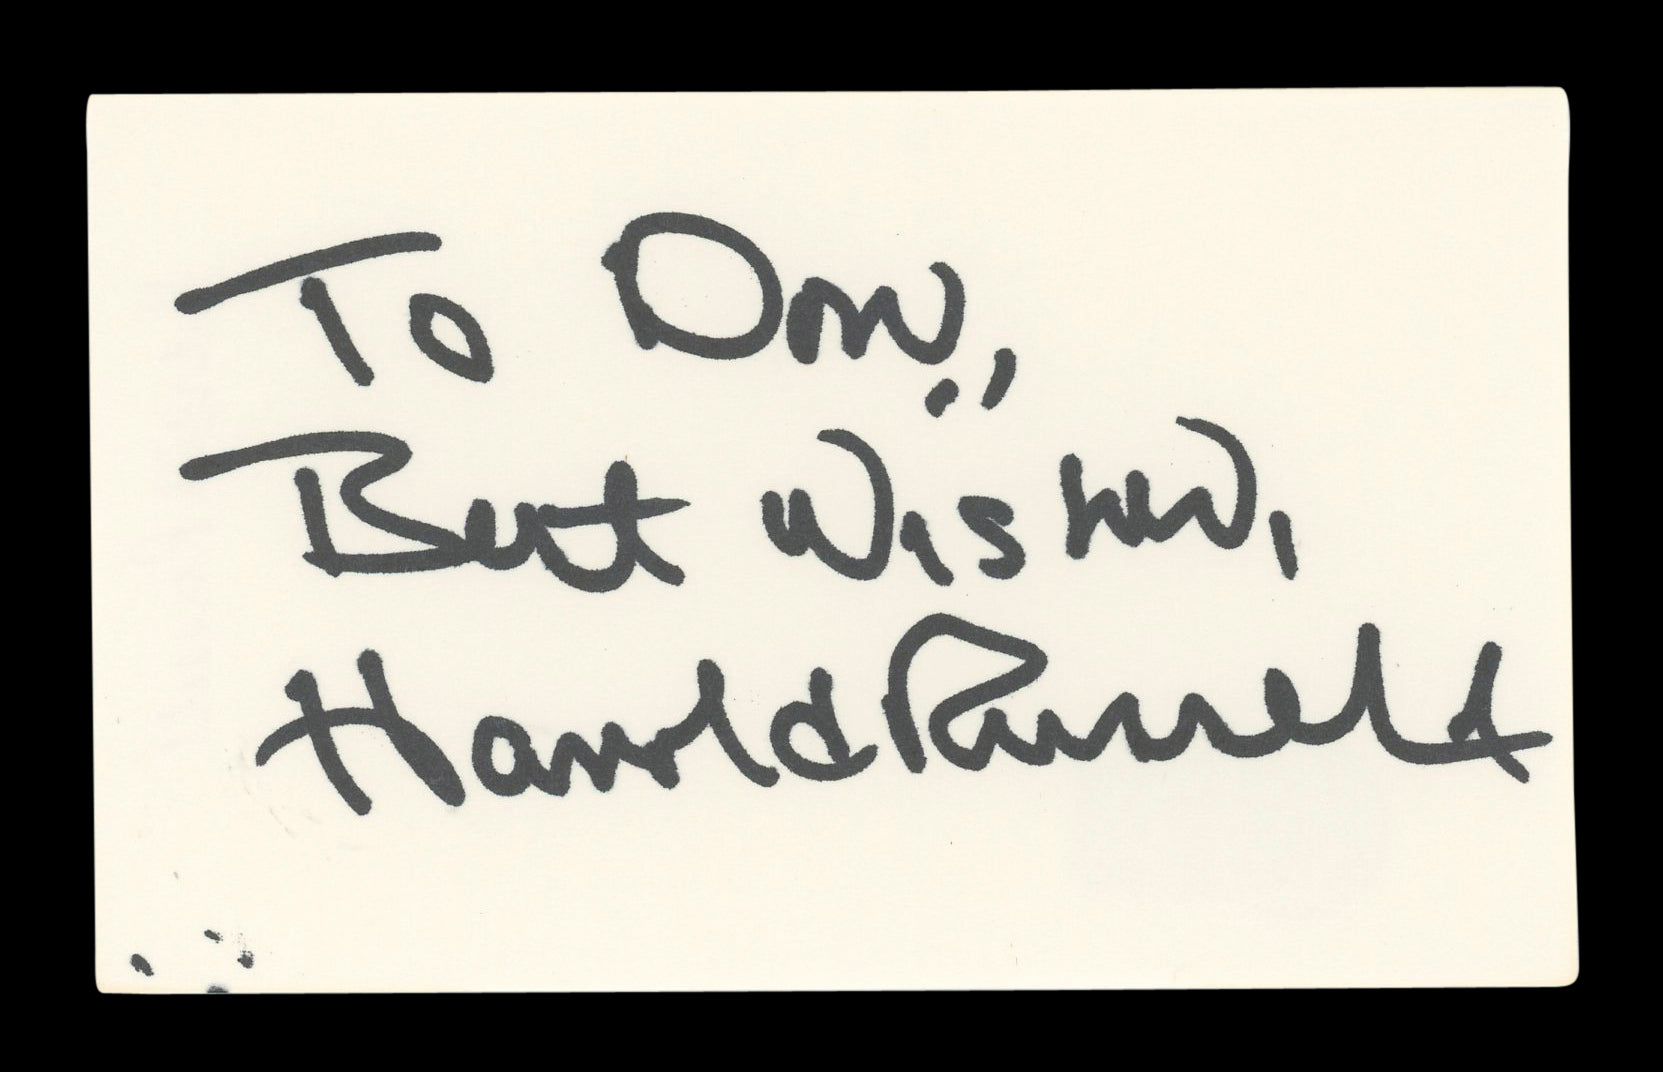 To Don,
Best Wishes,
Harold Russell